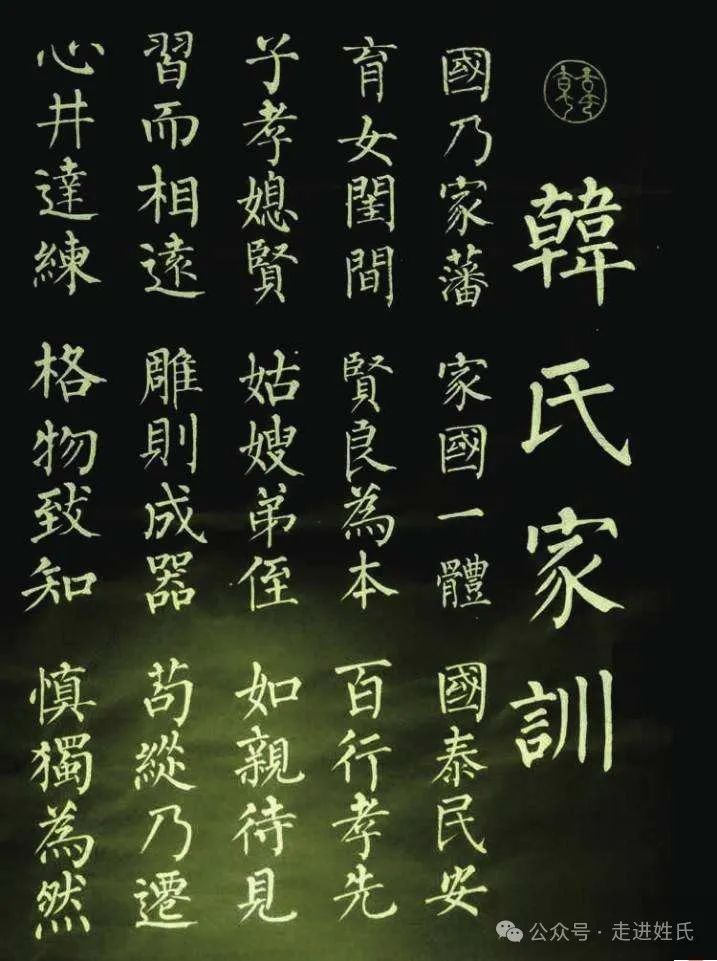 韓氏家訓
國乃家藩 家國一體 國泰民安
育女閨間 賢良為本 百行孝先
子孝媳賢 姑嫂弟侄 如親待見
習而相遠 雕則成器 苟縱乃遷
心井達練 格物致知 慎獨為然
公众号·走进姓氏